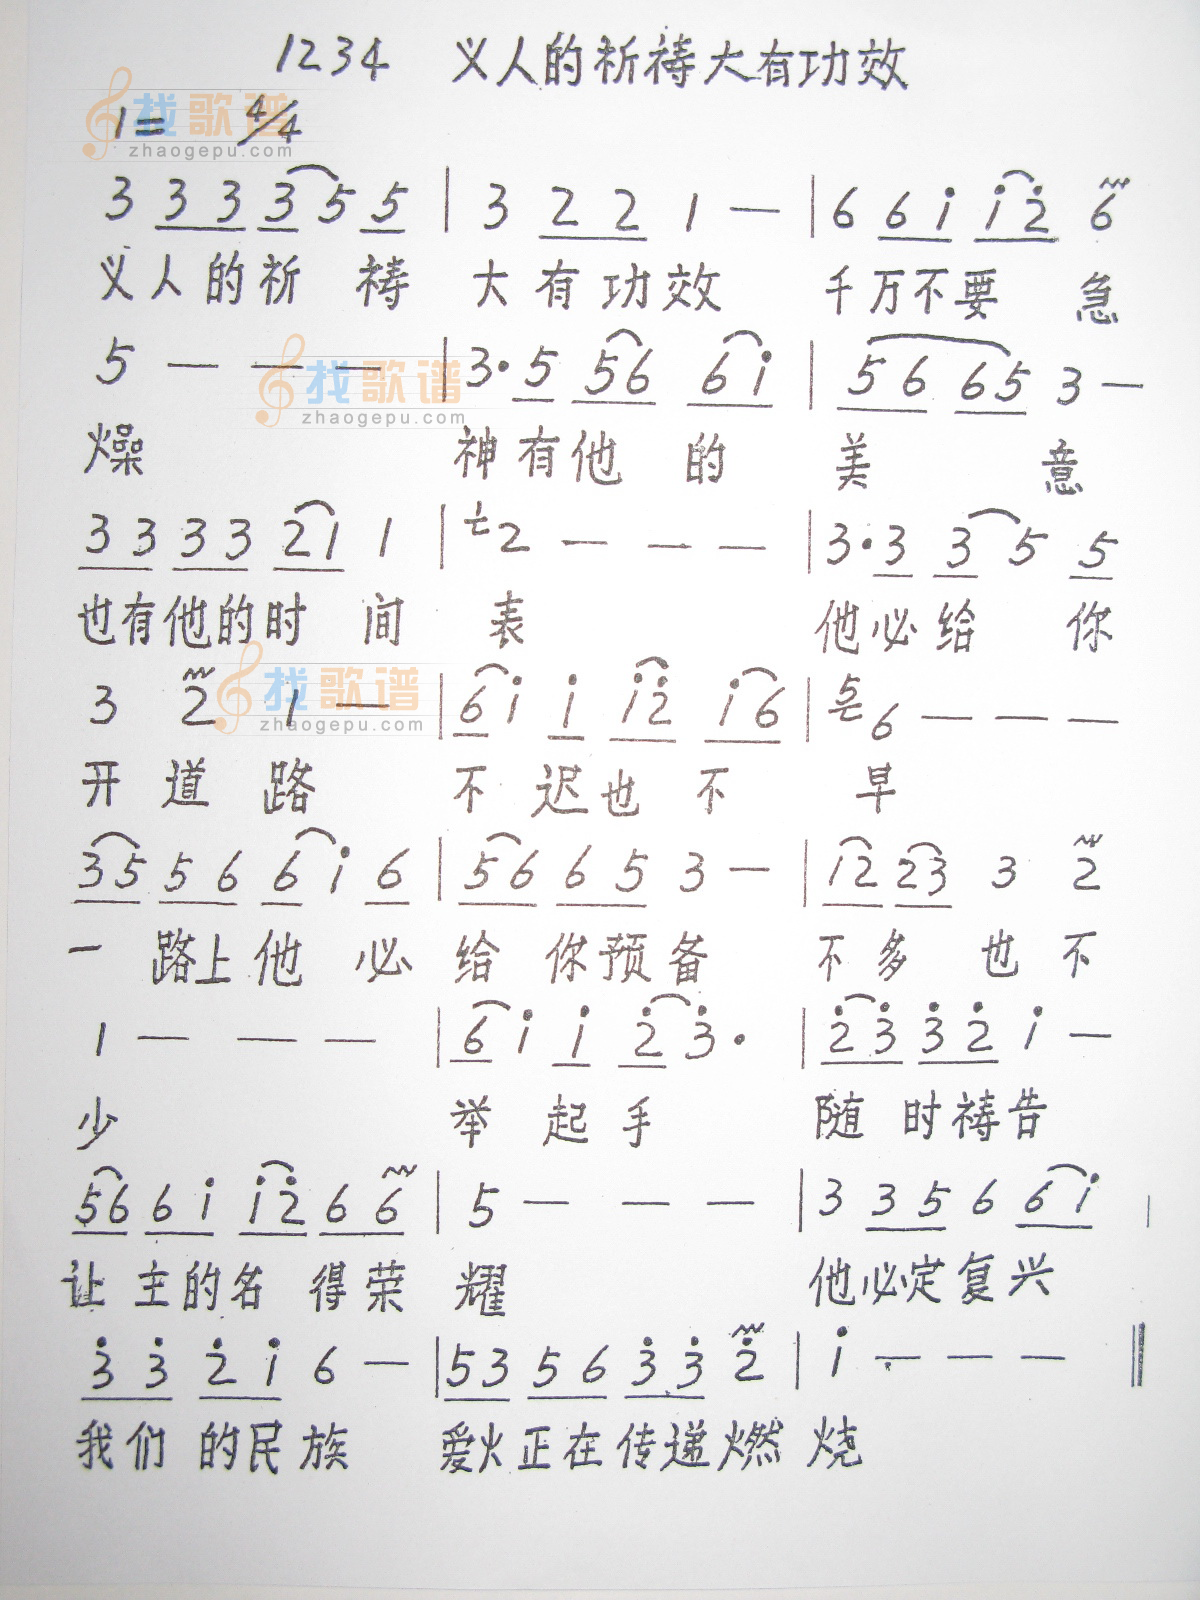 1234 义人的祈祷大有功效
找歌谱
1= 4/4
zhaogepu.com
3 3 3 3 5 5 | 3 2 2 1 — | 6 6 i i 2̇ 6
义人的祈 祷 大有功效 千万不要 急
5 — — — | 3· 5 5 6 6 i | 5 6 6 5 3 —
找歌谱
zhaogepu.com
燥 神有他 的 美 意
3 3 3 3 2 1 1 | 2 — — — | 3· 3 3 5 5
也有他的时 间 表 他必给 你
找歌谱
3 2 1 — | 6 i i i 2̇ i 6 | 6 — — —
zhaogepu.com
开 道 路 不 迟也 不 早
3 5 5 6 6 i 6 | 5 6 6 5 3 — | 1 2 2 3 3 2
一 路上他 必 给 你预备 不多 也不
1 — — — | 6 i i 2̇ 3̇· | 2̇ 3̇ 3̇ 2̇ i —
少 举 起 手 随 时祷告
5 6 6 i i 2̇ 6 6 | 5 — — — | 3 3 5 6 6 i |
让 主的名 得荣 耀 他必定复兴
3̇ 3̇ 2̇ i 6 — | 5 3 5 6 3̇ 3̇ 2̇ | i — — — ‖
我们 的民族 爱火正在传递燃 烧